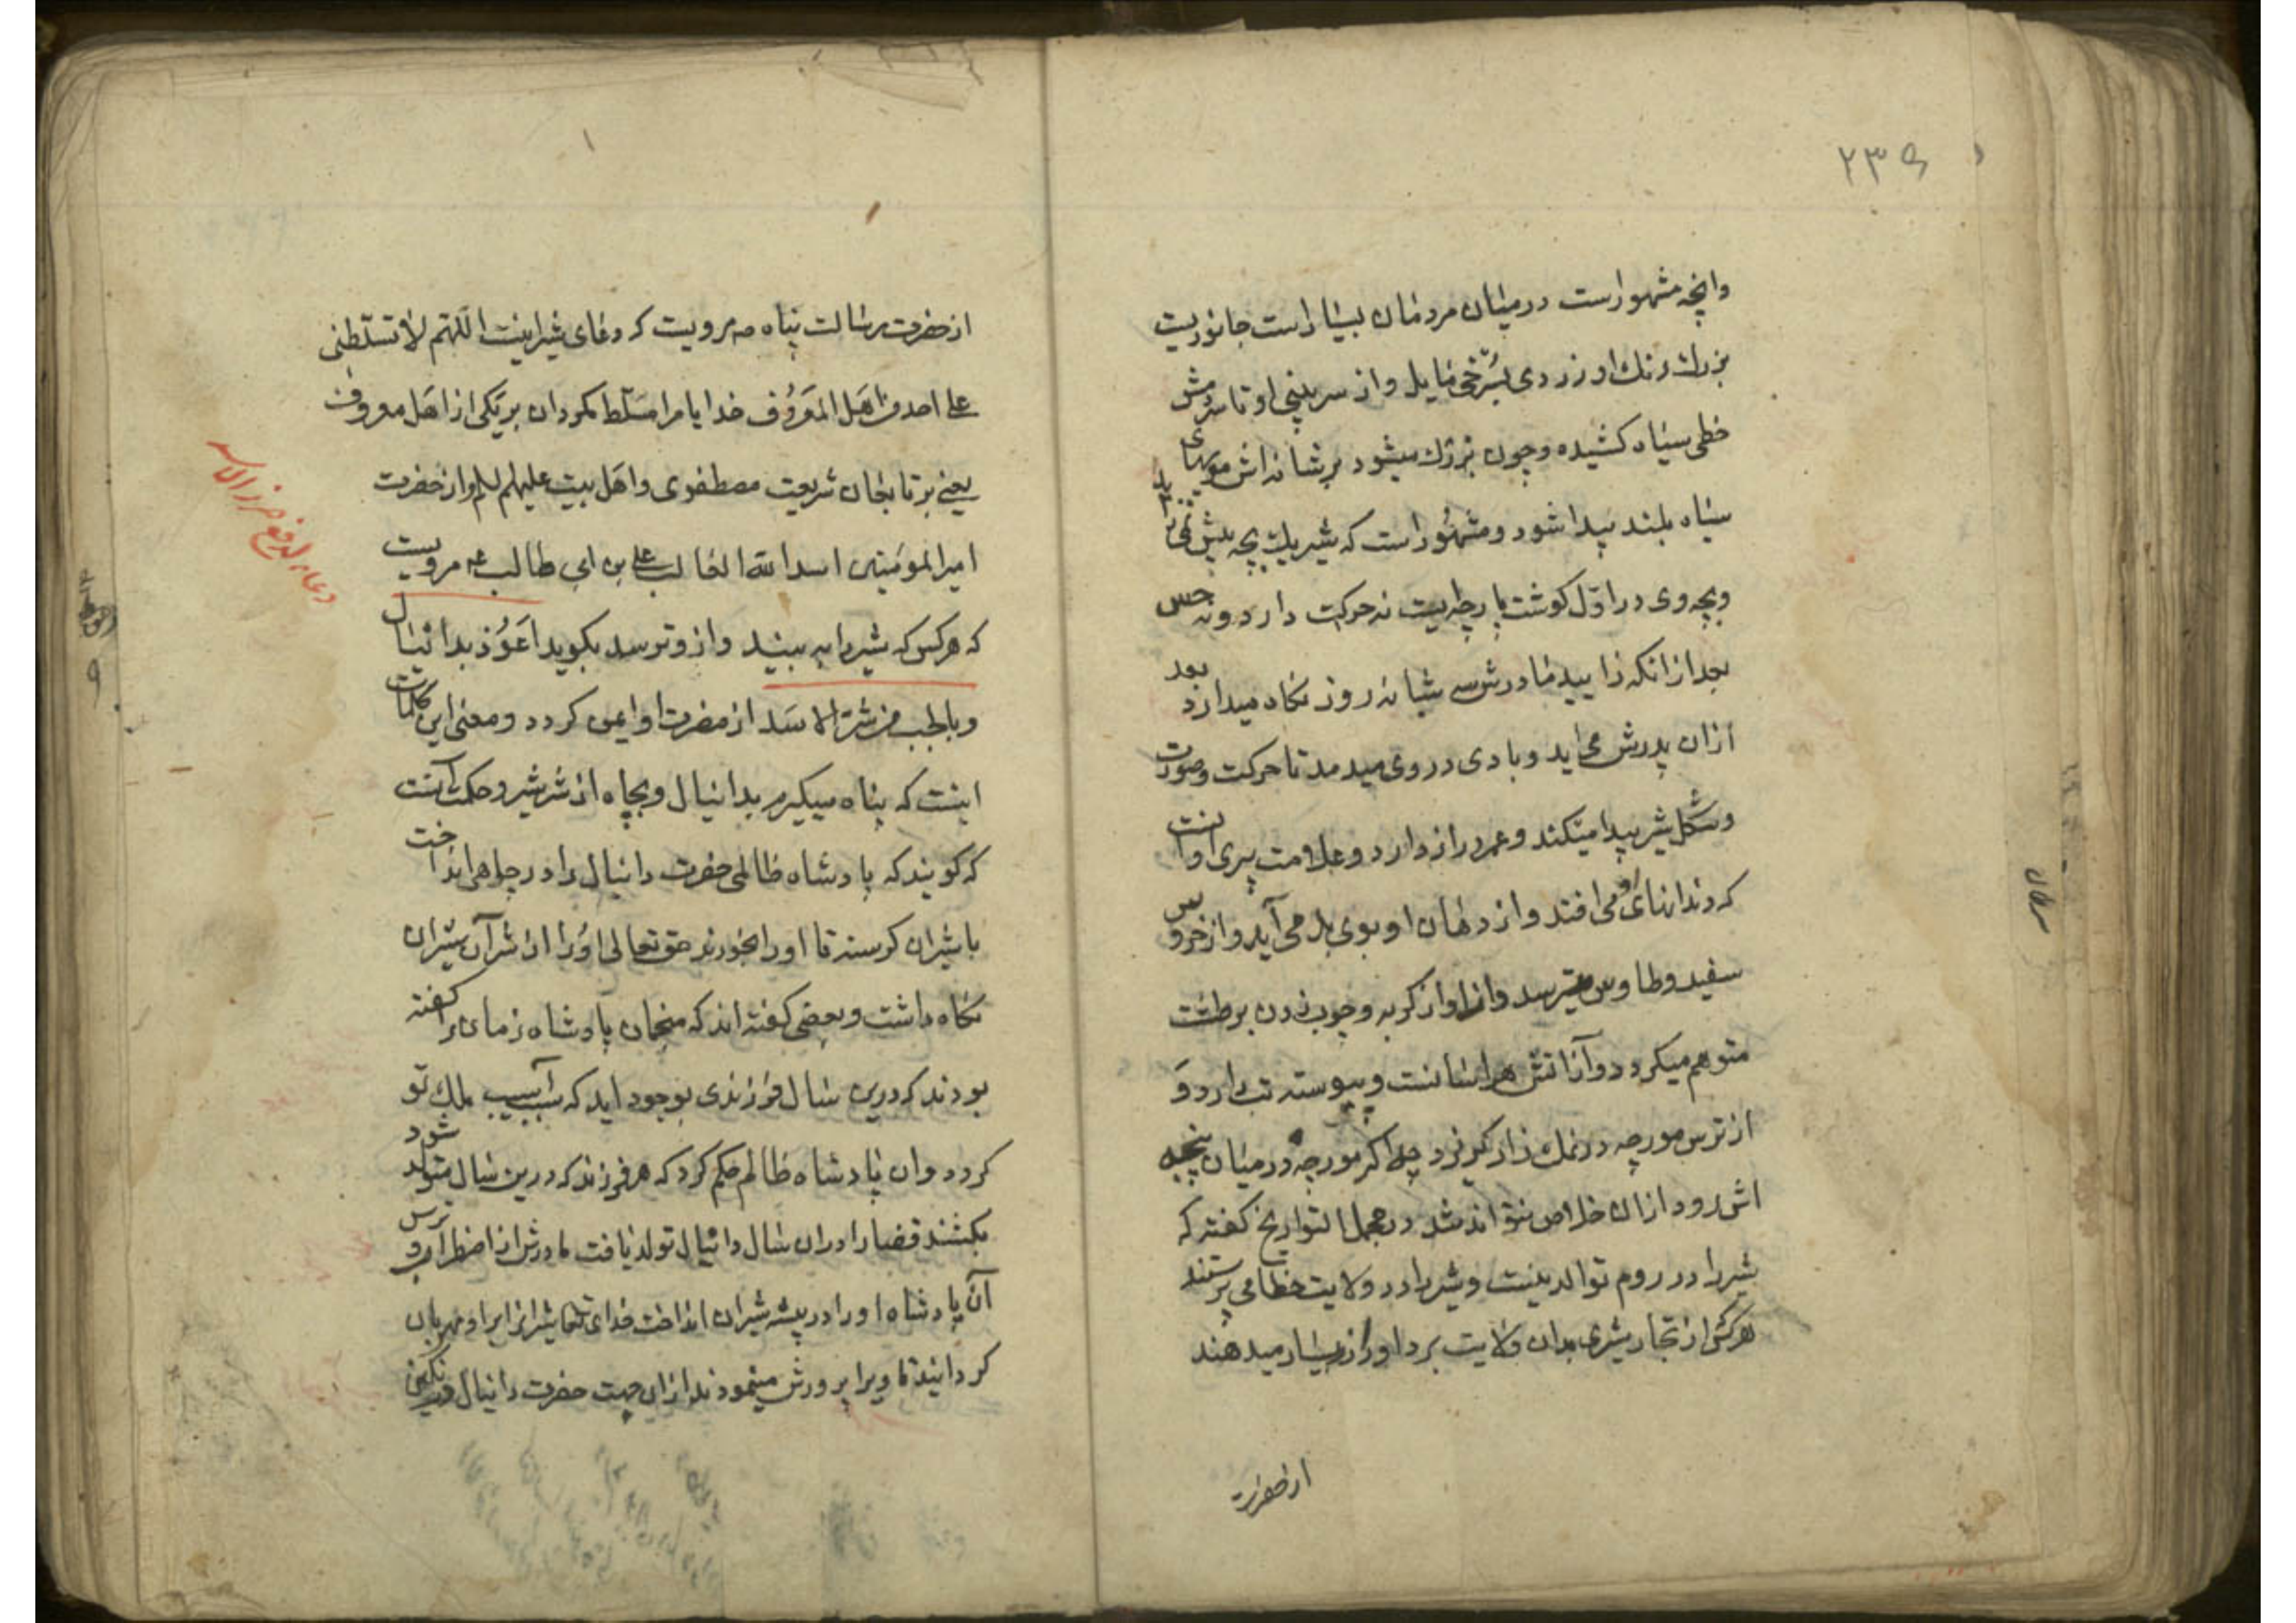 ۲۳۹
وانچه مشهور است در میان مردمان بسیار است جانوریست
بزرك رنك او زردی بسرخی مایل و از سر بینی او تا سر دمش
خطی سیاه کشیده و چون بزرك میشود بر شانه اش مویهای
سیاه بلند پیدا شود و مشهور است که شیر یك بچه بیش نمی
و بچه وی در اول کوشت پارچه ایست نه حرکت دارد و نه حس
بعد از انکه زایید مادرش سه شبانه روز نکاه میدارد بعد
ازان پدرش می اید و بادی در وی میدمد تا حرکت و صورت
و شکل شیر پیدا میکند و عمر دراز دارد و علامت پیری او انست
که دندانهای او می افتد و از دهان او بوی بد می آید و از خروس
سفید و طاوس میترسد و از اواز کربه و چوب زدن بر طشت
متوهم میکردد و از اتش هراسانست و پیوسته تب دارد و
از ترس مورچه در نمك زار کریزد چه اکر مورچه در میان پنجه
اش رود ازان خلاص نتواند شد در مجمل التواریخ کفته که
شیر را در روم توالد نیست و شیر را در ولایت خطا می پرستند
هر کس از تجار شیری بدان ولایت برد او را زر بسیار میدهند
از حضرت
سرطان
از حضرت رسالت پناه ص مرویست که دعای شیر اینست اللهم لا تسلطنی
علی احد من اهل المعروف خدایا مرا مسلط مکردان بر یکی از اهل معروف
یعنی بر تابعان شریعت مصطفوی و اهل بیت علیهم السلم و از حضرت
امیر المومنین اسد الله الغالب علی بن ابی طالب ع مرویست
که هر کس که شیر را به بیند و از و ترسد بکوید اعوذ بدانیال
و بالجب من شر الاسد از مضرت او ایمن کردد و معنی این کلمات
اینست که پناه میکیرم بدانیال و بچاه از شر شیر و حکمت انست
که کویند که پادشاه ظالمی حضرت دانیال را در چاهی انداخت
با شیران کرسنه تا او را بخورند حق تعالی او را از شر آن شیران
نکاه داشت و بعضی کفته اند که منجمان پادشاه زمان را کفته
بودند که درین سال فرزندی بوجود اید که سبب آسیب ملك تو
کردد و ان پادشاه ظالم حکم کرد که هر فرزند که درین سال متولد شود
بکشند قضا را دران سال دانیال تولد یافت مادرش از اضطراب و ترس
آن پادشاه او را در بیشه شیران انداخت خدای تعالی شیرانرا بر او مهربان
کردانید تا ویرا پرورش مینمودند ازان جهت حضرت دانیال در نکین
دعاء لدفع ضرر الاسد